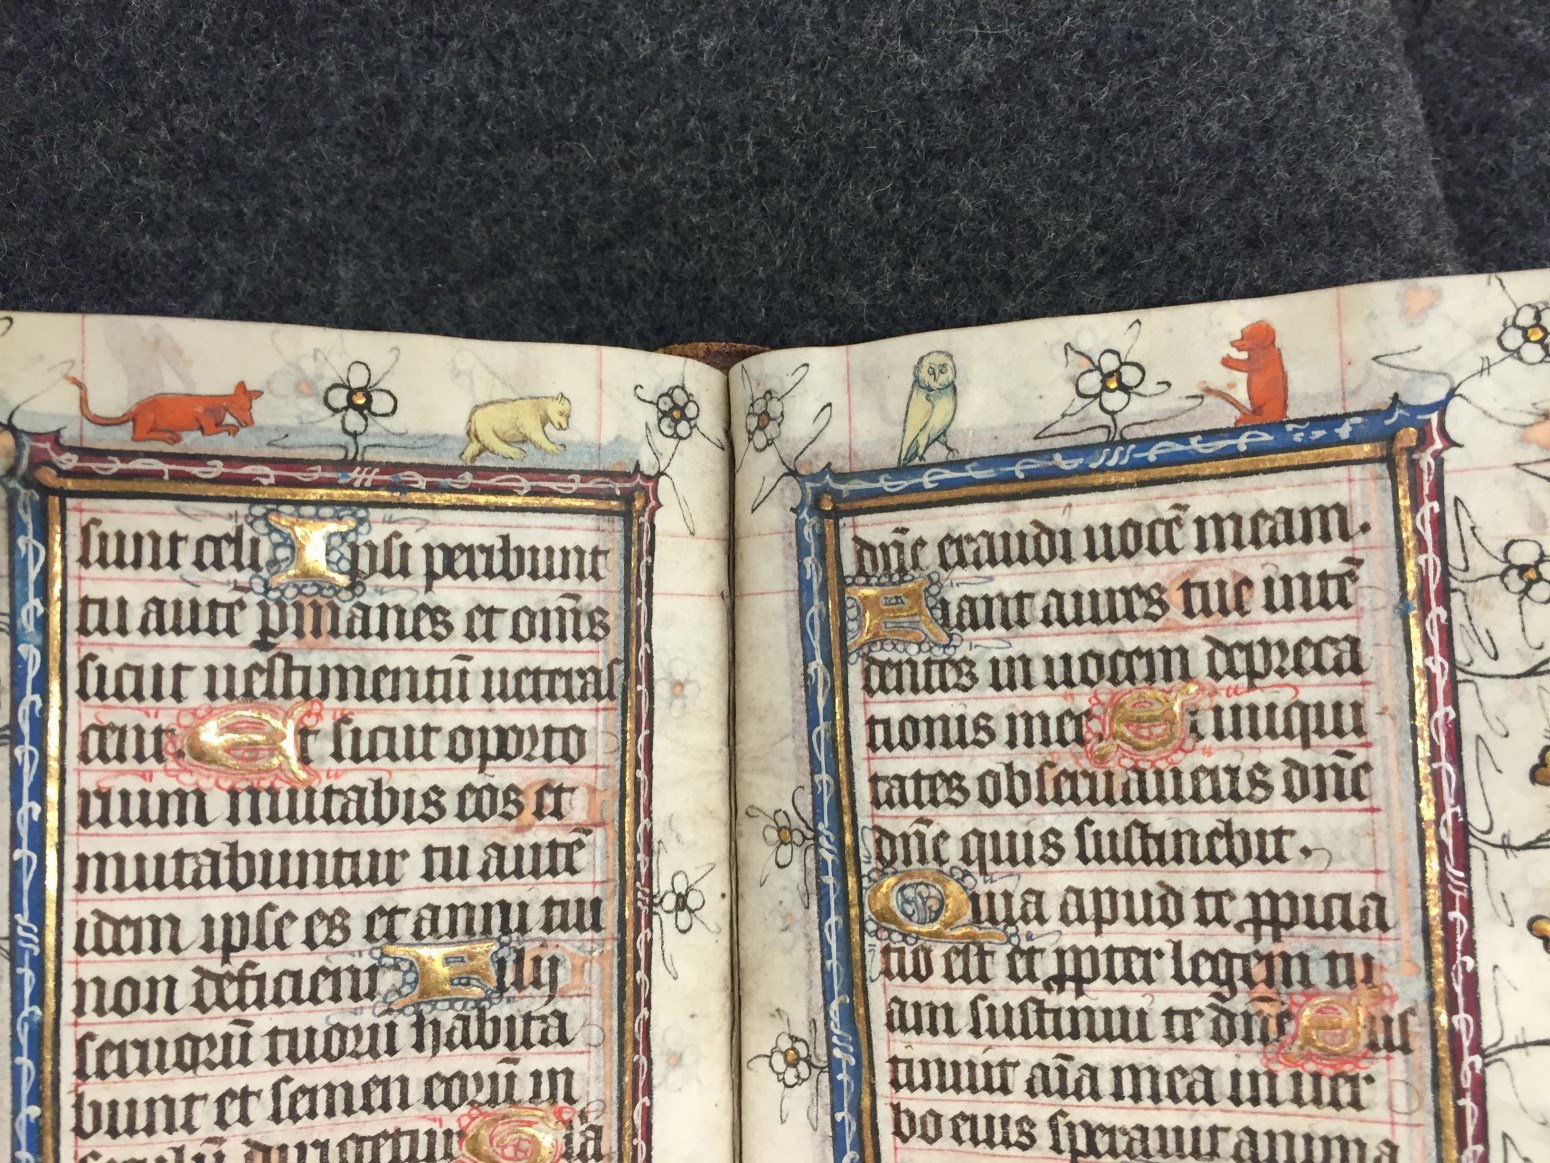 sunt celi Ipsi peribunt
tu autē pmanes et om̄s
sicut uestimentū ueteras
cent Et sicut oporto
rium mutabis eos et
mutabuntur tu autē
idem ipse es et anni tui
non deficient Filij
seruorū tuorū habita
bunt et semen eorū in
dirigetur
dn̄e exaudi uocē meam.
Fiant aures tue intē
dentes in uocem depreca
tionis mee Si iniqui
tates obseruaueris dn̄e
dn̄e quis sustinebit.
Quia apud te ꝓpicia
tio est et ꝓpter legem tu
am sustinui te dn̄e Sus
tinuit aīa mea in uer
bo eius sperauit anima